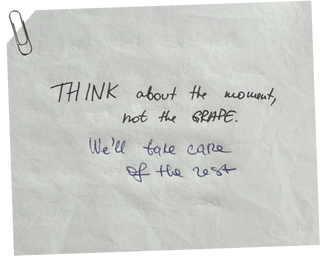 THINK about the moment,
not the GRAPE.
We'll take care
of the rest